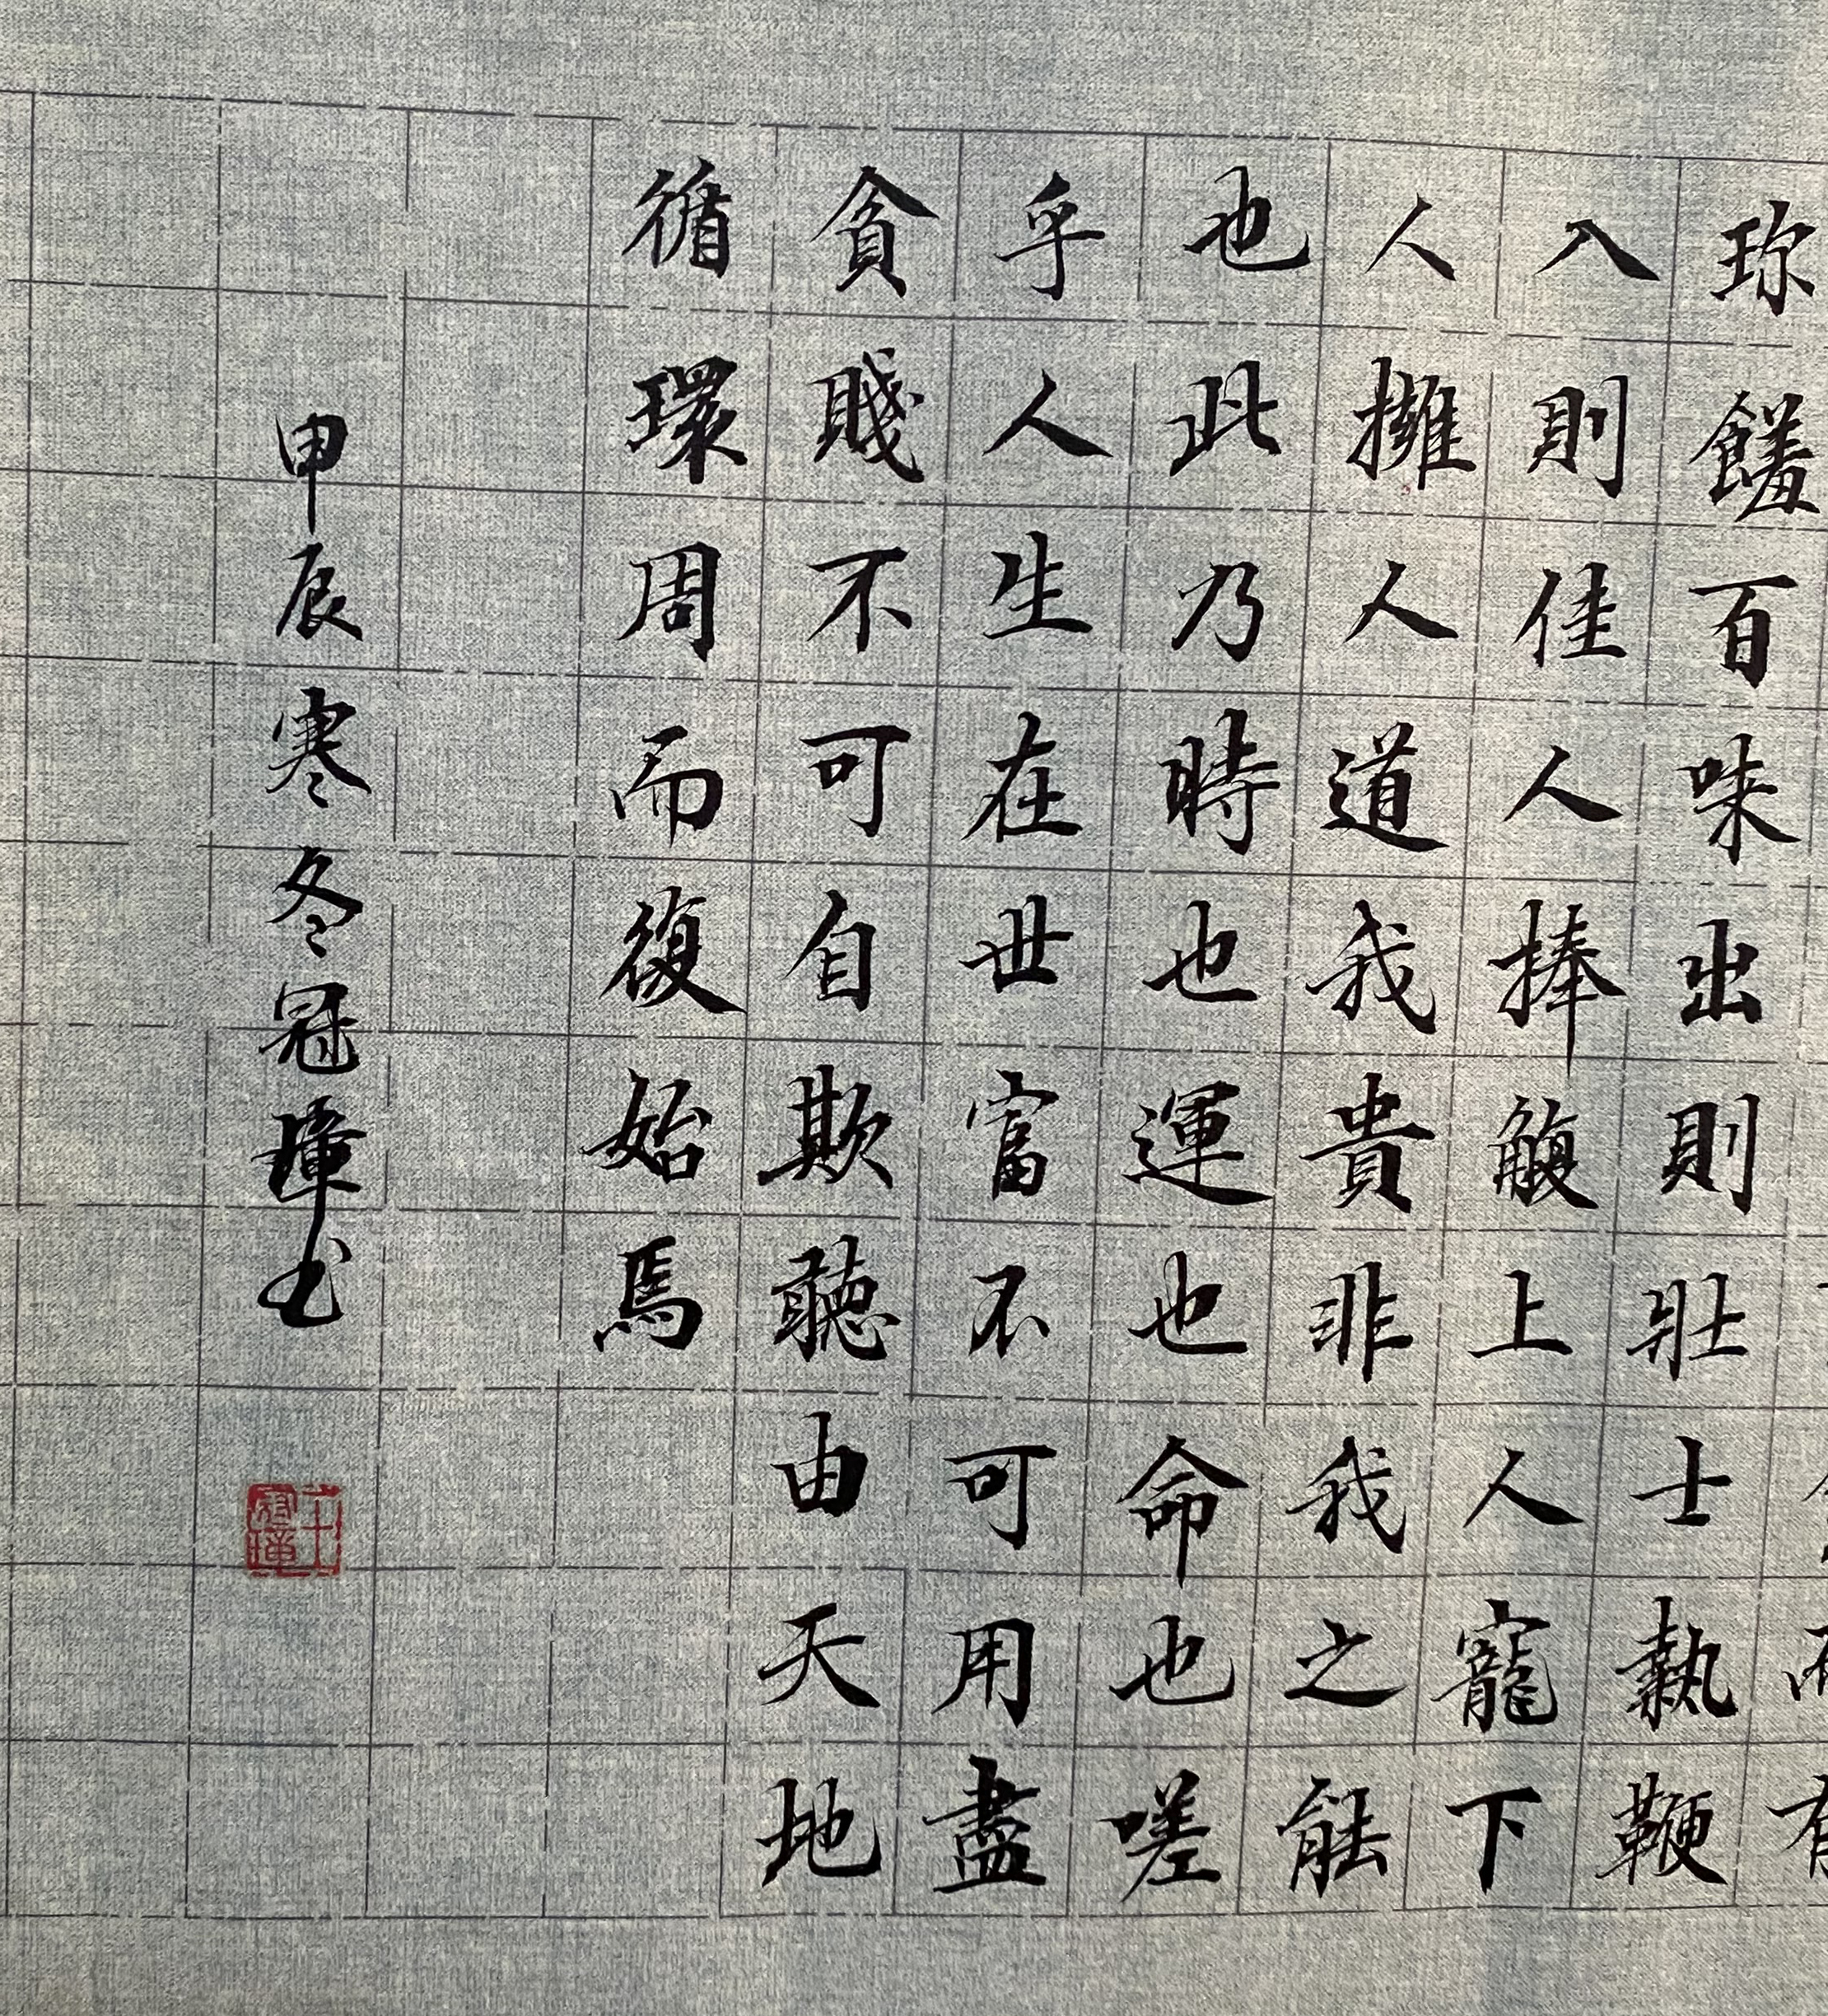 珎饈百味出則壯士執鞭
入則佳人捧觴上人寵下
人擁人道我貴非我之能
也此乃時也運也命也嗟
乎人生在世富不可用盡
貧賤不可自欺聽由天地
循環周而復始焉
甲辰寒冬冠璋书